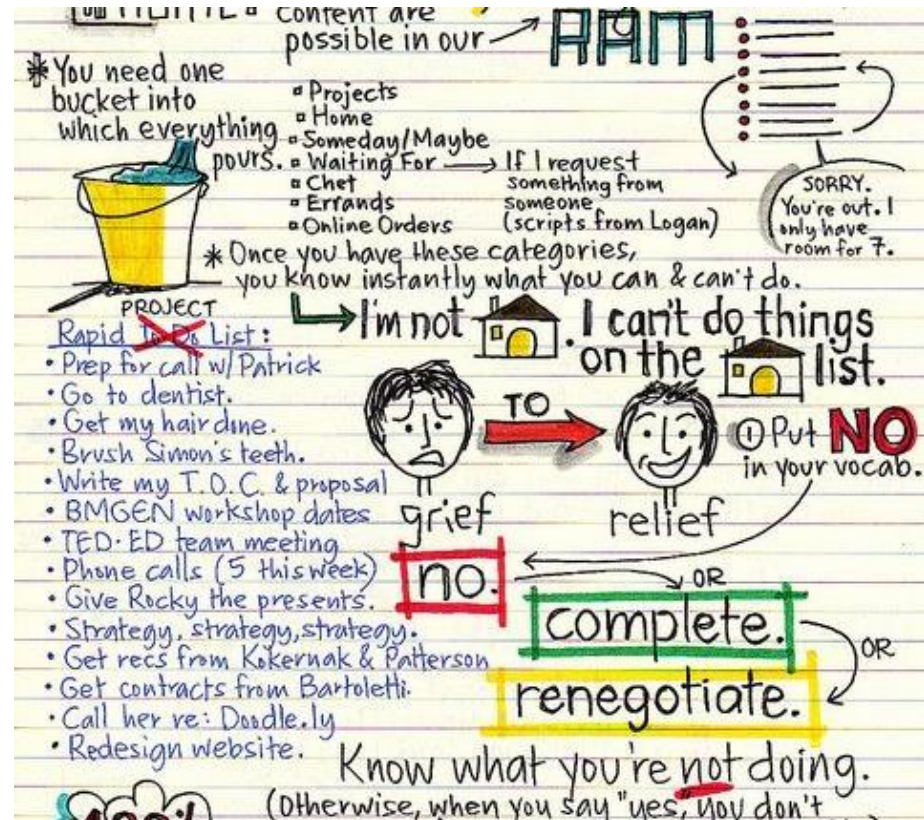 content are
possible in our
RAM
* You need one
bucket into
which everything
pours.
Projects
Home
Someday/Maybe
Waiting For
Chet
Errands
Online Orders
If I request
something from
someone
(scripts from Logan)
SORRY.
You're out. I
only have
room for 7.
* Once you have these categories,
you know instantly what you can & can't do.
I'm not . I can't do things
on the list.
PROJECT
Rapid To Do List:
• Prep for call w/ Patrick
• Go to dentist.
• Get my hair done.
• Brush Simon's teeth.
• Write my T.O.C. & proposal
• BMGEN workshop dates
• TED-ED team meeting
• Phone calls (5 this week)
• Give Rocky the presents.
• Strategy, strategy, strategy.
• Get recs from Kokernak & Patterson
• Get contracts from Bartoletti.
• Call her re: Doodle.ly
• Redesign website.
TO
grief
relief
① Put NO
in your vocab.
no.
OR
complete.
OR
renegotiate.
Know what you're not doing.
(Otherwise, when you say "yes," you don't